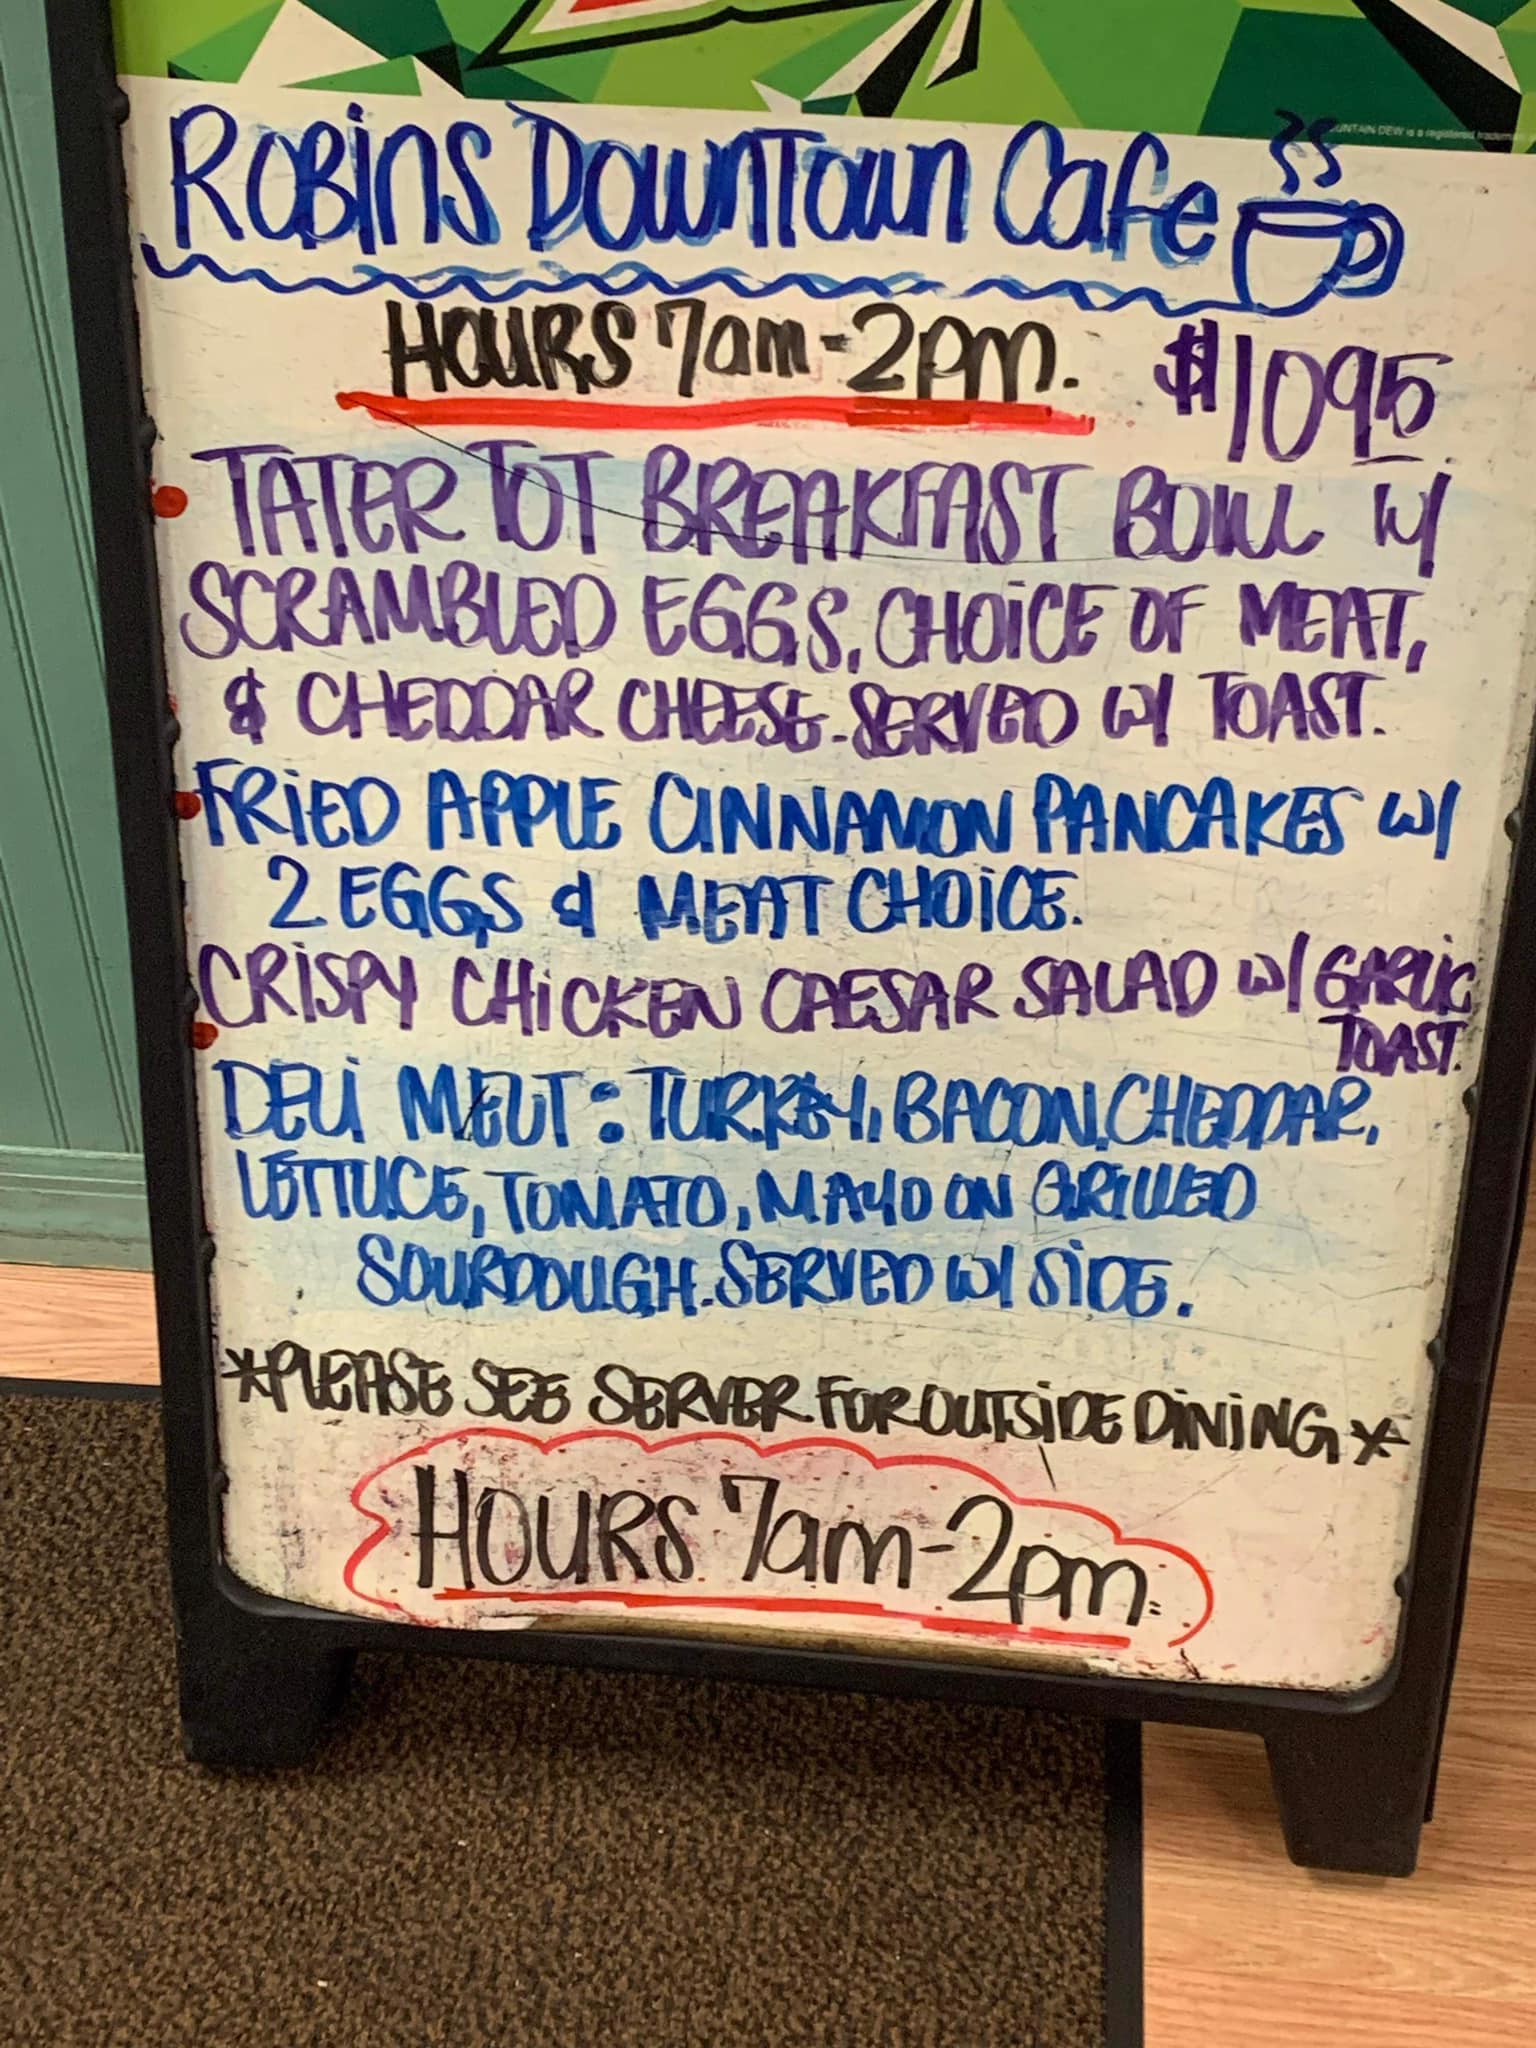 UNTAIN DEW is a registered tradem
ROBiNS DOWNTOWN Cafe
HOURS 7am-2pm.
$1095
TATER TOT BREAKFAST BOWL W/
SCRAMBLED EGGS, CHOiCE OF MEAT,
& CHEDDAR CHEESE. SERVED W/ TOAST.
FRiED APPLE CINNAMON PANCAKES W/
2 EGGS & MEAT CHOiCE.
CRiSPY CHiCKEN CAESAR SALAD W/ GARLiC
TOAST.
DELi MELT: TURKEY, BACON, CHEDDAR,
LETTUCE, TOMATO, MAYO ON GRILLED
SOURDOUGH. SERVED W/ SiDE.
*PLEASE SEE SERVER FOR OUTSiDE DiNiNG*
HOURS 7am-2pm.